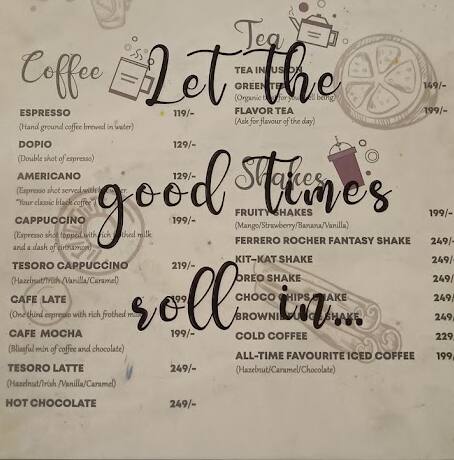 Let the
good times
roll in...
Coffee
ESPRESSO 119/-
(Hand ground coffee brewed in water)
DOPIO 129/-
(Double shot of espresso)
AMERICANO 129/-
(Espresso shot served with
"Your classic black coffee")
CAPPUCCINO 199/-
(Espresso shot topped with rich frothed milk
and a dash of cinnamon)
TESORO CAPPUCCINO 219/-
(Hazelnut/Irish/Vanilla/Caramel)
CAFE LATE 199
(One third espresso with rich frothed milk
CAFE MOCHA 199/-
(Blissful min of coffee and chocolate)
TESORO LATTE 249/-
(Hazelnut/Irish/Vanilla/Caramel)
HOT CHOCOLATE 249/-
Tea
TEA INFUSION
GREEN TEA 149/-
(Organic being)
FLAVOR TEA 199/-
(Ask for flavour of the day)
Shakes
FRUITY SHAKES 199/-
(Mango/Strawberry/Banana/Vanilla)
FERRERO ROCHER FANTASY SHAKE 249/
KIT-KAT SHAKE 249/
OREO SHAKE 249/
CHOCO CHIPS SHAKE 249/
BROWNIE SHAKE 249/
COLD COFFEE 229
ALL-TIME FAVOURITE ICED COFFEE 199/
(Hazelnut/Caramel/Chocolate)